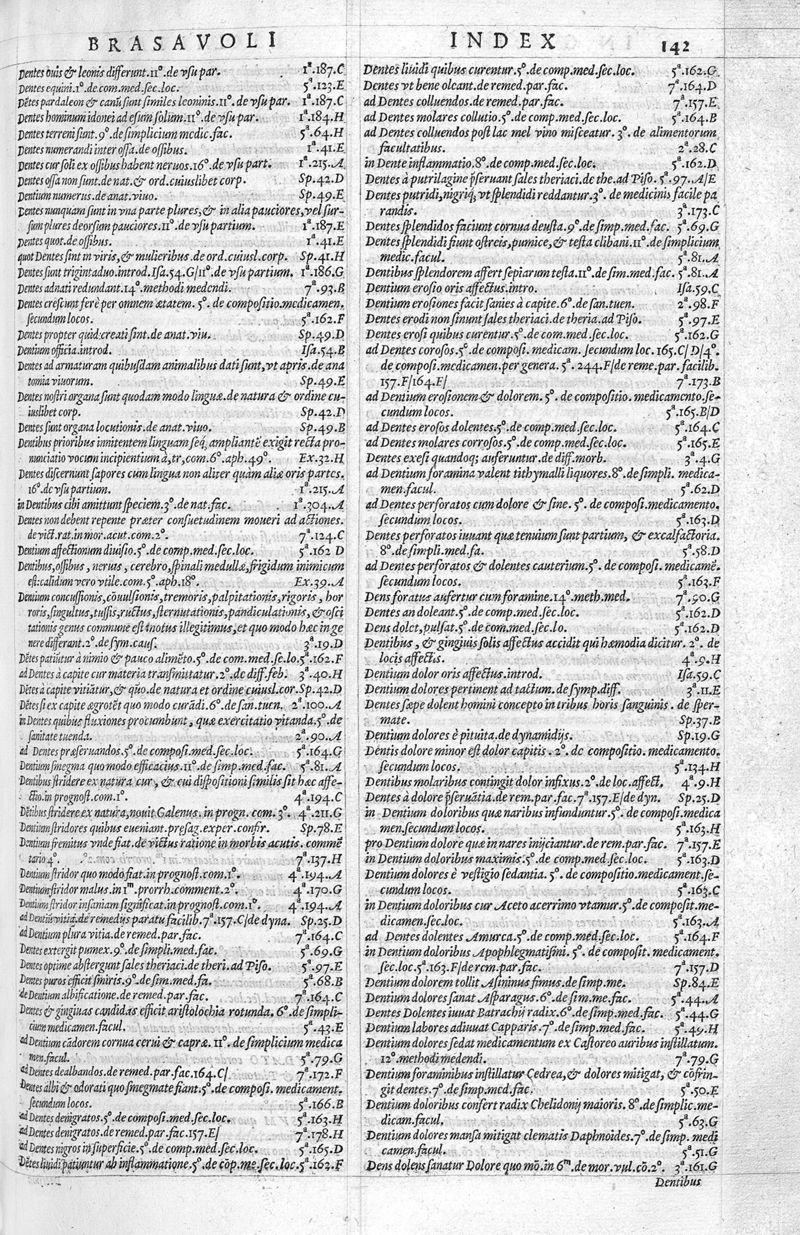 BRASAVOLI
Dentes ouis & leonis differunt.11°.de vsu par. 1ª.187.C
Dentes equini.1°.de com.med.sec.loc. 5ª.123.E
Dẽtes pardaleon & canũ sunt similes leoninis.11°.de vsu par. 1ª.187.C
Dentes hominum idonei ad esum solium.11°.de vsu par. 1ª.184.H
Dentes terreni sunt.9°.de simplicium medic.fac. 5ª.64.H
Dentes numerandi inter ossa.de ossibus. 1ª.41.E
Dentes cur soli ex ossibus habent neruos.16°.de vsu part. 1ª.215.A
Dentes ossa non sunt.de nat.& ord.cuiuslibet corp. Sp.42.D
Dentium numerus.de anat.viuo. Sp.49.E
Dentes nunquam sunt in vna parte plures,& in alia pauciores,vel sur-
sum plures deorsum pauciores.11°.de vsu partium. 1ª.187.E
Dentes quot.de ossibus. 1ª.41.E
quot Dentes sint in viris,& mulieribus.de ord.cuiusl.corp. Sp.41.H
Dentes sunt triginta duo.introd.Isa.54.G/11°.de vsu partium. 1ª.186.G
Dentes adnati redundant.14°.methodi medendi. 7ª.93.B
Dentes crescunt ferè per omnem ætatem. 5°. de compositio.medicamen.
secundum locos. 5ª.162.F
Dentes propter quid creati sint.de anat.viu. Sp.49.D
Dentium officia.introd. Isa.54.B
Dentes ad armaturam quibusdam animalibus dati sunt,vt apris.de ana
tomia viuorum. Sp.49.E
Dentes nostri organa sunt quodam modo linguæ.de natura & ordine cu-
iuslibet corp. Sp.42.D
Dentes sunt organa locutionis.de anat.viuo. Sp.49.B
Dentibus prioribus innitentem linguam seq; ampliantẽ exigit recta pro-
nunciatio vocum incipientium à,tr,com.6°.aph.49°. Ex.32.H
Dentes discernunt sapores cum lingua non aliter quàm aliæ oris partes.
16°.de vsu partium. 1ª.215.A
in Dentibus cibi amittunt speciem.3°.de nat.fac. 1ª.304.A
Dentes non debent repente præter consuetudinem moueri ad actiones.
de vict.rat.in mor.acut.com.2°. 7ª.124.C
Dentium affectionum diuisio.5°.de comp.med.sec.loc. 5ª.162 D
Dentibus,ossibus, neruis, cerebro,spinali medullæ,frigidum inimicum
est:calidum vero vtile.com.5°.aph.18°. Ex.39.A
Dentium concussionis,cõuulsionis,tremoris,palpitationis,rigoris, hor
roris,singultus,tussis,ructus,sternutationis,pandiculationis,& osci
tationis genus commune est motus illegitimus,et quo modo hæc in ge
nere differant.2°.de sym.caus. 3ª.19.D
Dẽtes patiũtur à nimio & pauco alimẽto.5°.de com.med.se.lo.5ª.162.F
ad Dentes à capite cur materia transmittatur.2°.de diff.feb. 3ª.40.H
Dẽtes à capite vitiãtur,& quo.de natura et ordine cuiusl.cor.Sp.42.D
Dẽtes si ex capite ægrotẽt quo modo curãdi.6°.de san.tuen. 2ª.100.A
in Dentes quibus fluxiones procumbunt, quæ exercitatio vitanda.5°.de
sanitate tuenda. 2ª.90.A
ad Dentes præseruandos.5°.de composi.med.sec.loc. 5ª.164.G
Dentium smegma quo modo efficacius.11°.de simp.med.fac. 5ª.81.A
Dentibus stridere ex natura cur, & cui dispositioni similis sit hæc affe-
ctio.in prognost.com.1°. 4ª.194.C
Dẽtibus stridere ex natura,nouit Galenus.in progn. com.3°. 4ª.211.G
Dentium stridores quibus eueniant.præsag.exper.confir. Sp.78.E
Dentium fremitus vnde fiat.de victus ratione in morbis acutis. commẽ
tario 4°. 7ª.137.H
Dentium stridor quo modo fiat.in prognost.com.1°. 4ª.194.A
Dentium stridor malus.in 1ᵐ.prorrh.comment.2°. 4ª.170.G
Dentium stridor insaniam significat.in prognost.com.1°. 4ª.194.A
ad Dentiũ vitia.de remedijs paratu facilib.7ª.157.C/de dyna. Sp.25.D
ad Dentium plura vitia.de remed.par.fac. 7ª.164.C
Dentes extergit pumex.9°.de simpli.med.fac. 5ª.69.G
Dentes optime abstergunt sales theriaci.de theri.ad Piso. 5ª.97.E
Dentes puros efficit smiris.9°.de sim.med.fa. 5ª.68.B
de Dentium albificatione.de remed.par.fac. 7ª.164.C
Dentes & gingiuas candidas efficit aristolochia rotunda. 6°.de simpli-
cium medicamen.facul. 5ª.43.E
ad Dentium cãdorem cornua cerui & capræ. 11°.de simplicium medica
men.facul. 5ª.79.G
ad Dentes dealbandos.de remed.par.fac.164.C/ 7ª.172.F
Dentes albi & odorati quo smegmate fiant.5°.de composi. medicament.
secundum locos. 5ª.166.B
ad Dentes denigratos.5°.de composi.med.sec.loc. 5ª.163.H
ad Dentes denigratos.de remed.par.fac.157.E/ 7ª.178.H
ad Dentes nigros in superficie.5°.de comp.med.sec.loc. 5ª.165.D
Dẽtes liuidi patiuntur ab inflammatione.5°.de cõp.me.sec.loc.5ª.162.F
INDEX 142
Dentes liuidi quibus curentur.5°.de comp.med.sec.loc. 5ª.162.G
Dentes vt bene oleant.de remed.par.fac. 7ª.164.D
ad Dentes colluendos.de remed.par.fac. 7ª.157.E
ad Dentes molares collutio.5°.de comp.med.sec.loc. 5ª.164.B
ad Dentes colluendos post lac mel vino misceatur. 3°. de alimentorum
facultatibus. 2ª.28.C
in Dente inflammatio.8°.de comp.med.sec.loc. 5ª.162.D
Dentes à putrilagine p̃seruant sales theriaci.de the.ad Piso.5ª.97.A/E
Dentes putridi,nigriq; vt splendidi reddantur.3°. de medicinis facile pa
randis. 3ª.173.C
Dentes splendidos faciunt cornua deusta.9°.de simp.med.fac. 5ª.69.G
Dentes splendidi fiunt ostreis,pumice,& testa clibani.11°.de simplicium
medic.facul. 5ª.81.A
Dentibus splendorem affert sepiarum testa.11°.de sim.med.fac. 5ª.81.A
Dentium erosio oris affectus.intro. Isa.59.C
Dentium erosiones facit sanies à capite.6°.de san.tuen. 2ª.98.F
Dentes erodi non sinunt sales theriaci.de theria.ad Piso. 5ª.97.E
Dentes erosi quibus curentur.5°.de com.med.sec.loc. 5ª.162.G
ad Dentes corosos.5°.de composi. medicam.secundum loc.165.C/D/4°.
de composi.medicamen.per genera. 5ª.244.F/de reme.par.facilib.
157.F/164.E/ 7ª.173.B
ad Dentium erosionem & dolorem. 5°. de compositio.medicamento.se-
cundum locos. 5ª.165.B/D
ad Dentes erosos dolentes.5°.de comp.med.sec.loc. 5ª.164.C
ad Dentes molares corrosos.5°.de comp.med.sec.loc. 5ª.165.E
Dentes exesi quandoq; auferuntur.de diff.morb. 3ª.4.G
ad Dentium foramina valent tithymalli liquores.8°.de simpli. medica-
men.facul. 5ª.62.D
ad Dentes perforatos cum dolore & sine. 5°. de composi.medicamento.
secundum locos. 5ª.163.D
Dentes perforatos iuuant quæ tenuium sunt partium, & excalfactoria.
8°.de simpli.med.fa. 5ª.58.D
ad Dentes perforatos & dolentes cauterium.5°. de composi. medicamẽ.
secundum locos. 5ª.163.F
Dens foratus aufertur cum foramine.14°.meth.med. 7ª.90.G
Dentes an doleant.de comp.med.sec.loc. 5ª.162.D
Dens dolet,pulsat.5°.de com.med.sec.lo. 5ª.162.D
Dentibus, & gingiuis solis affectus accidit qui hæmodia dicitur. 2°. de
locis affectis. 4ª.9.H
Dentium dolor oris affectus.introd. Isa.59.C
Dentium dolores pertinent ad tactum.de symp.diff. 3ª.11.E
Dentes sæpe dolent homini concepto in tribus horis sanguinis. de sper-
mate. Sp.37.B
Dentium dolores è pituita.de dynamidijs. Sp.19.G
Dẽntis dolore minor est dolor capitis. 2°. de compositio. medicamento.
secundum locos. 5ª.134.H
Dentibus molaribus contingit dolor infixus.2°.de loc.affect. 4ª.9.H
Dentes à dolore p̃seruãtia.de rem.par.fac.7ª.157.E/de dyn. Sp.25.D
in Dentium doloribus quæ naribus infunduntur.5°. de composi.medica
men.secundum locos. 5ª.163.H
pro Dentium dolore quæ in nares inijciantur.de rem.par.fac. 7ª.157.E
in Dentium doloribus maximis.5°.de comp.med.sec.loc. 5ª.163.D
Dentium dolores è vestigio sedantia. 5°. de compositio.medicament.se-
cundum locos. 5ª.163.C
in Dentium doloribus cur Aceto acerrimo vtamur.5°.de composit.me-
dicamen.sec.loc. 5ª.163.A
ad Dentes dolentes Amurca.5°.de comp.med.sec.loc. 5ª.164.F
in Dentium doloribus Apophlegmatismi. 5°. de composit. medicament.
sec.loc.5ª.163.F/de rem.par.fac. 7ª.157.D
Dentium dolorem tollit Asininus fimus.de simp.me. Sp.84.E
Dentium dolores sanat Asparagus.6°.de sim.me.fac. 5ª.44.A
Dentes Dolentes iuuat Batrachij radix.6°.de simp.med.fac. 5ª.44.G
Dentium labores adiuuat Capparis.7°.de simp.med.fac. 5ª.49.H
Dentium dolores sedat medicamentum ex Castoreo auribus instillatum.
12°.methodi medendi. 7ª.79.G
Dentium foraminibus instillatur Cedrea,& dolores mitigat, & cõfrin-
git dentes.7°.de simp.med.fac. 5ª.50.E
Dentium doloribus confert radix Chelidonij maioris. 8°.de simplic.me-
dicam.facul. 5ª.63.G
Dentium dolores mansa mitigat clematis Daphnoides.7°.de simp. medi
camen.facul. 5ª.51.G
Dens dolens sanatur Dolore quo mõ.in 6ᵐ.de mor.vul.cõ.2°. 3ª.161.G
Dentibus